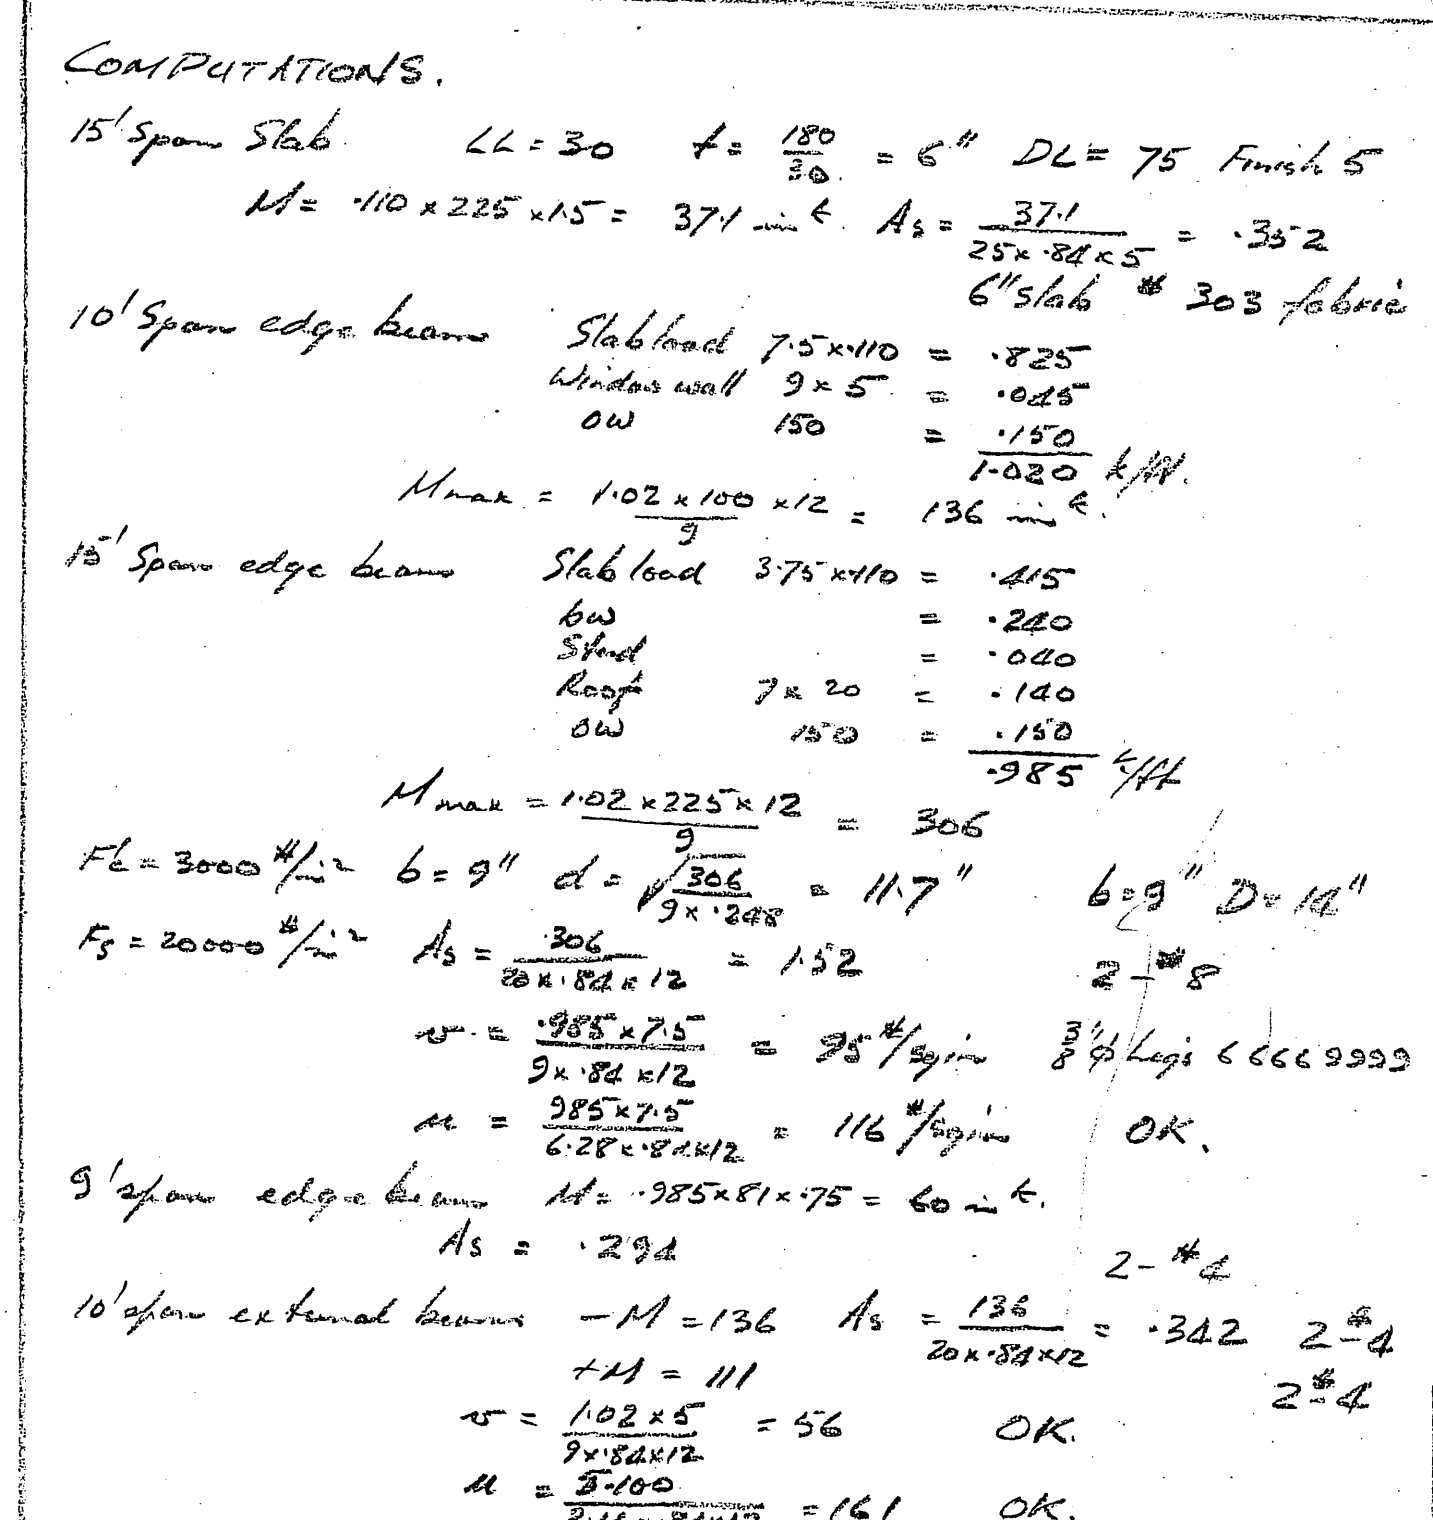 COMPUTATIONS.
15' Span Slab. LL = 30 t = 180/30 = 6" DL = 75 Finish 5
M = .110 x 225 x 1.5 = 37.1 in k. As = 37.1/(25 x .84 x 5) = .352
6" slab # 303 fabric
10' Span edge beam Slab load 7.5 x .110 = .825
Window wall 9 x 5 = .045
OW 150 = .150
1.020 k/ft.
M max = (1.02 x 100 x 12)/9 = 136 in k.
15' Span edge beam Slab load 3.75 x 110 = .415
bw = .240
Stud = .040
Roof 7 x 20 = .140
OW 150 = .150
.985 k/ft
M max = (1.02 x 225 x 12)/9 = 306
F'c = 3000 #/in² b = 9" d = √(306/(9 x .248)) = 11.7" b = 9" D = 14"
Fs = 20000 #/in² As = 306/(20 x .84 x 12) = 1.52 2 - # 8
v = (.985 x 7.5)/(9 x .84 x 12) = 95 #/sqin 3/8" φ Ligs 6 6 6 6 9 9 9 9
u = (985 x 7.5)/(6.28 x .84 x 12) = 116 #/sqin OK.
9' span edge beam M = .985 x 81 x .75 = 60 in k.
As = .294
2 - # 4
10' span external beam - M = 136 As = 136/(20 x .84 x 12) = .342 2 - # 4
+ M = 111 2 - # 4
v = (1.02 x 5)/(9 x .84 x 12) = 56 OK.
u = = 161 OK.